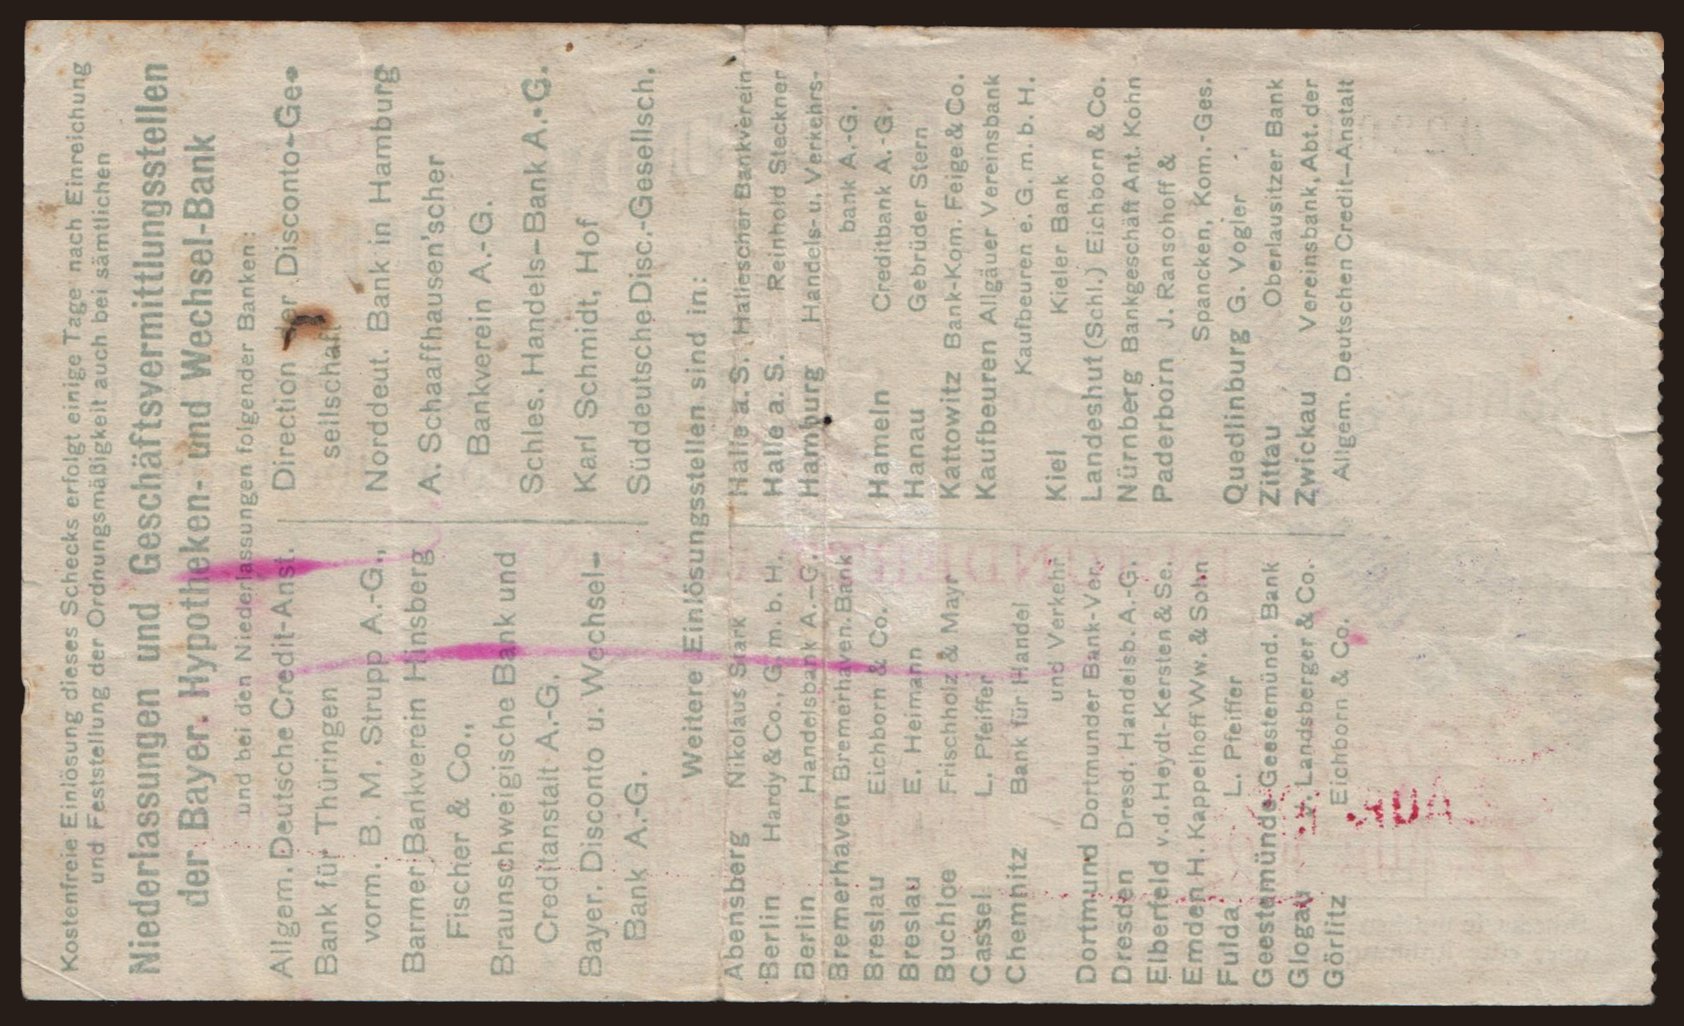 Kostenfreie Einlösung dieses Schecks erfolgt einige Tage nach Einreichung
und Feststellung der Ordnungsmäßigkeit auch bei sämtlichen
Niederlassungen und Geschäftsvermittlungsstellen
der Bayer. Hypotheken- und Wechsel-Bank
und bei den Niederlassungen folgender Banken:
Allgem. Deutsche Credit-Anst.
Bank für Thüringen
vorm. B. M. Strupp A.-G.,
Barmer Bankverein Hinsberg
Fischer & Co.,
Braunschweigische Bank und
Creditanstalt A.-G.
Bayer. Disconto u. Wechsel-
Bank A.-G.
Direction der Disconto-Ge-
sellschaft
Norddeut. Bank in Hamburg
A. Schaaffhausen'scher
Bankverein A.-G.
Schles. Handels-Bank A.-G.
Karl Schmidt, Hof
Süddeutsche Disc.-Gesellsch.
Weitere Einlösungsstellen sind in:
Abensberg Nikolaus Stark
Berlin Hardy & Co., G. m. b. H.
Berlin Handelsbank A.-G.
Bremerhaven Bremerhaven. Bank
Breslau Eichborn & Co.
Breslau E. Heimann
Buchloe Frischholz & Mayr
Cassel L. Pfeiffer
Chemnitz Bank für Handel
und Verkehr
Dortmund Dortmunder Bank-Ver.
Dresden Dresd. Handelsb. A.-G.
Elberfeld v.d. Heydt-Kersten & Se.
Emden H. Kappelhoff Ww. & Sohn
Fulda L. Pfeiffer
Geestemünde Geestemünd. Bank
Glogau Landsberger & Co.
Görlitz Eichborn & Co.
Halle a. S. Hallescher Bankverein
Halle a. S. Reinhold Steckner
Hamburg Handels- u. Verkehrs-
bank A.-G.
Hameln Creditbank A.-G.
Hanau Gebrüder Stern
Kattowitz Bank-Kom. Feige & Co.
Kaufbeuren Allgäuer Vereinsbank
Kaufbeuren e. G. m. b. H.
Kiel Kieler Bank
Landeshut (Schl.) Eichborn & Co.
Nürnberg Bankgeschäft Ant. Kohn
Paderborn J. Ransohoff &
Spancken, Kom.-Ges.
Quedlinburg G. Vogler
Zittau Oberlausitzer Bank
Zwickau Vereinsbank, Abt. der
Allgem. Deutschen Credit-Anstalt